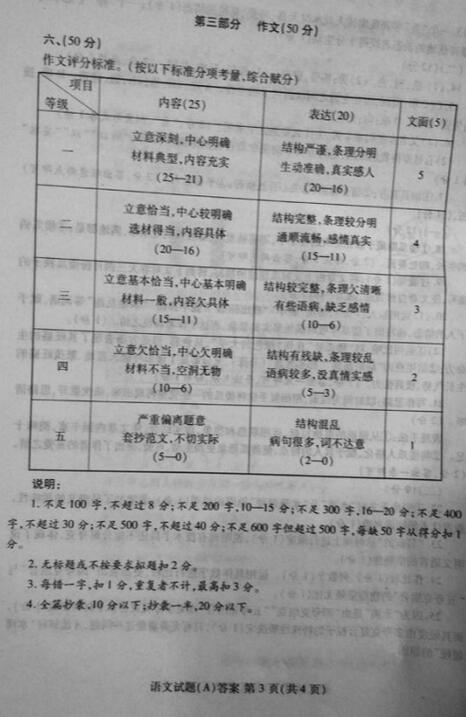 第三部分 作文(50分)
六、(50分)
作文评分标准。(按以下标准分项考量,综合赋分)
项目
等级
内容(25)
表达(20)
文面(5)
一
立意深刻,中心明确
材料典型,内容充实
(25—21)
结构严谨,条理分明
生动准确,真实感人
(20—16)
5
二
立意恰当,中心较明确
选材得当,内容具体
(20—16)
结构完整,条理较分明
通顺流畅,感情真实
(15—11)
4
三
立意基本恰当,中心基本明确
材料一般,内容欠具体
(15—11)
结构较完整,条理欠清晰
有些语病,缺乏感情
(10—6)
3
四
立意欠恰当,中心欠明确
材料不当,空洞无物
(10—6)
结构有残缺,条理较乱
语病较多,没真情实感
(5—3)
2
五
严重偏离题意
套抄范文,不切实际
(5—0)
结构混乱
病句很多,词不达意
(2—0)
1
说明:
1. 不足100字,不超过8分;不足200字,10—15分;不足300字,16—20分;不足400
字,不超过30分;不足500字,不超过40分;不足600字但超过500字,每缺50字从得分扣1
分。
2. 无标题或不按要求拟题扣2分。
3. 每错一字,扣1分,重复者不计,最高扣3分。
4. 全篇抄袭,10分以下;抄袭一半,20分以下。
语文试题(A)答案 第3页(共4页)